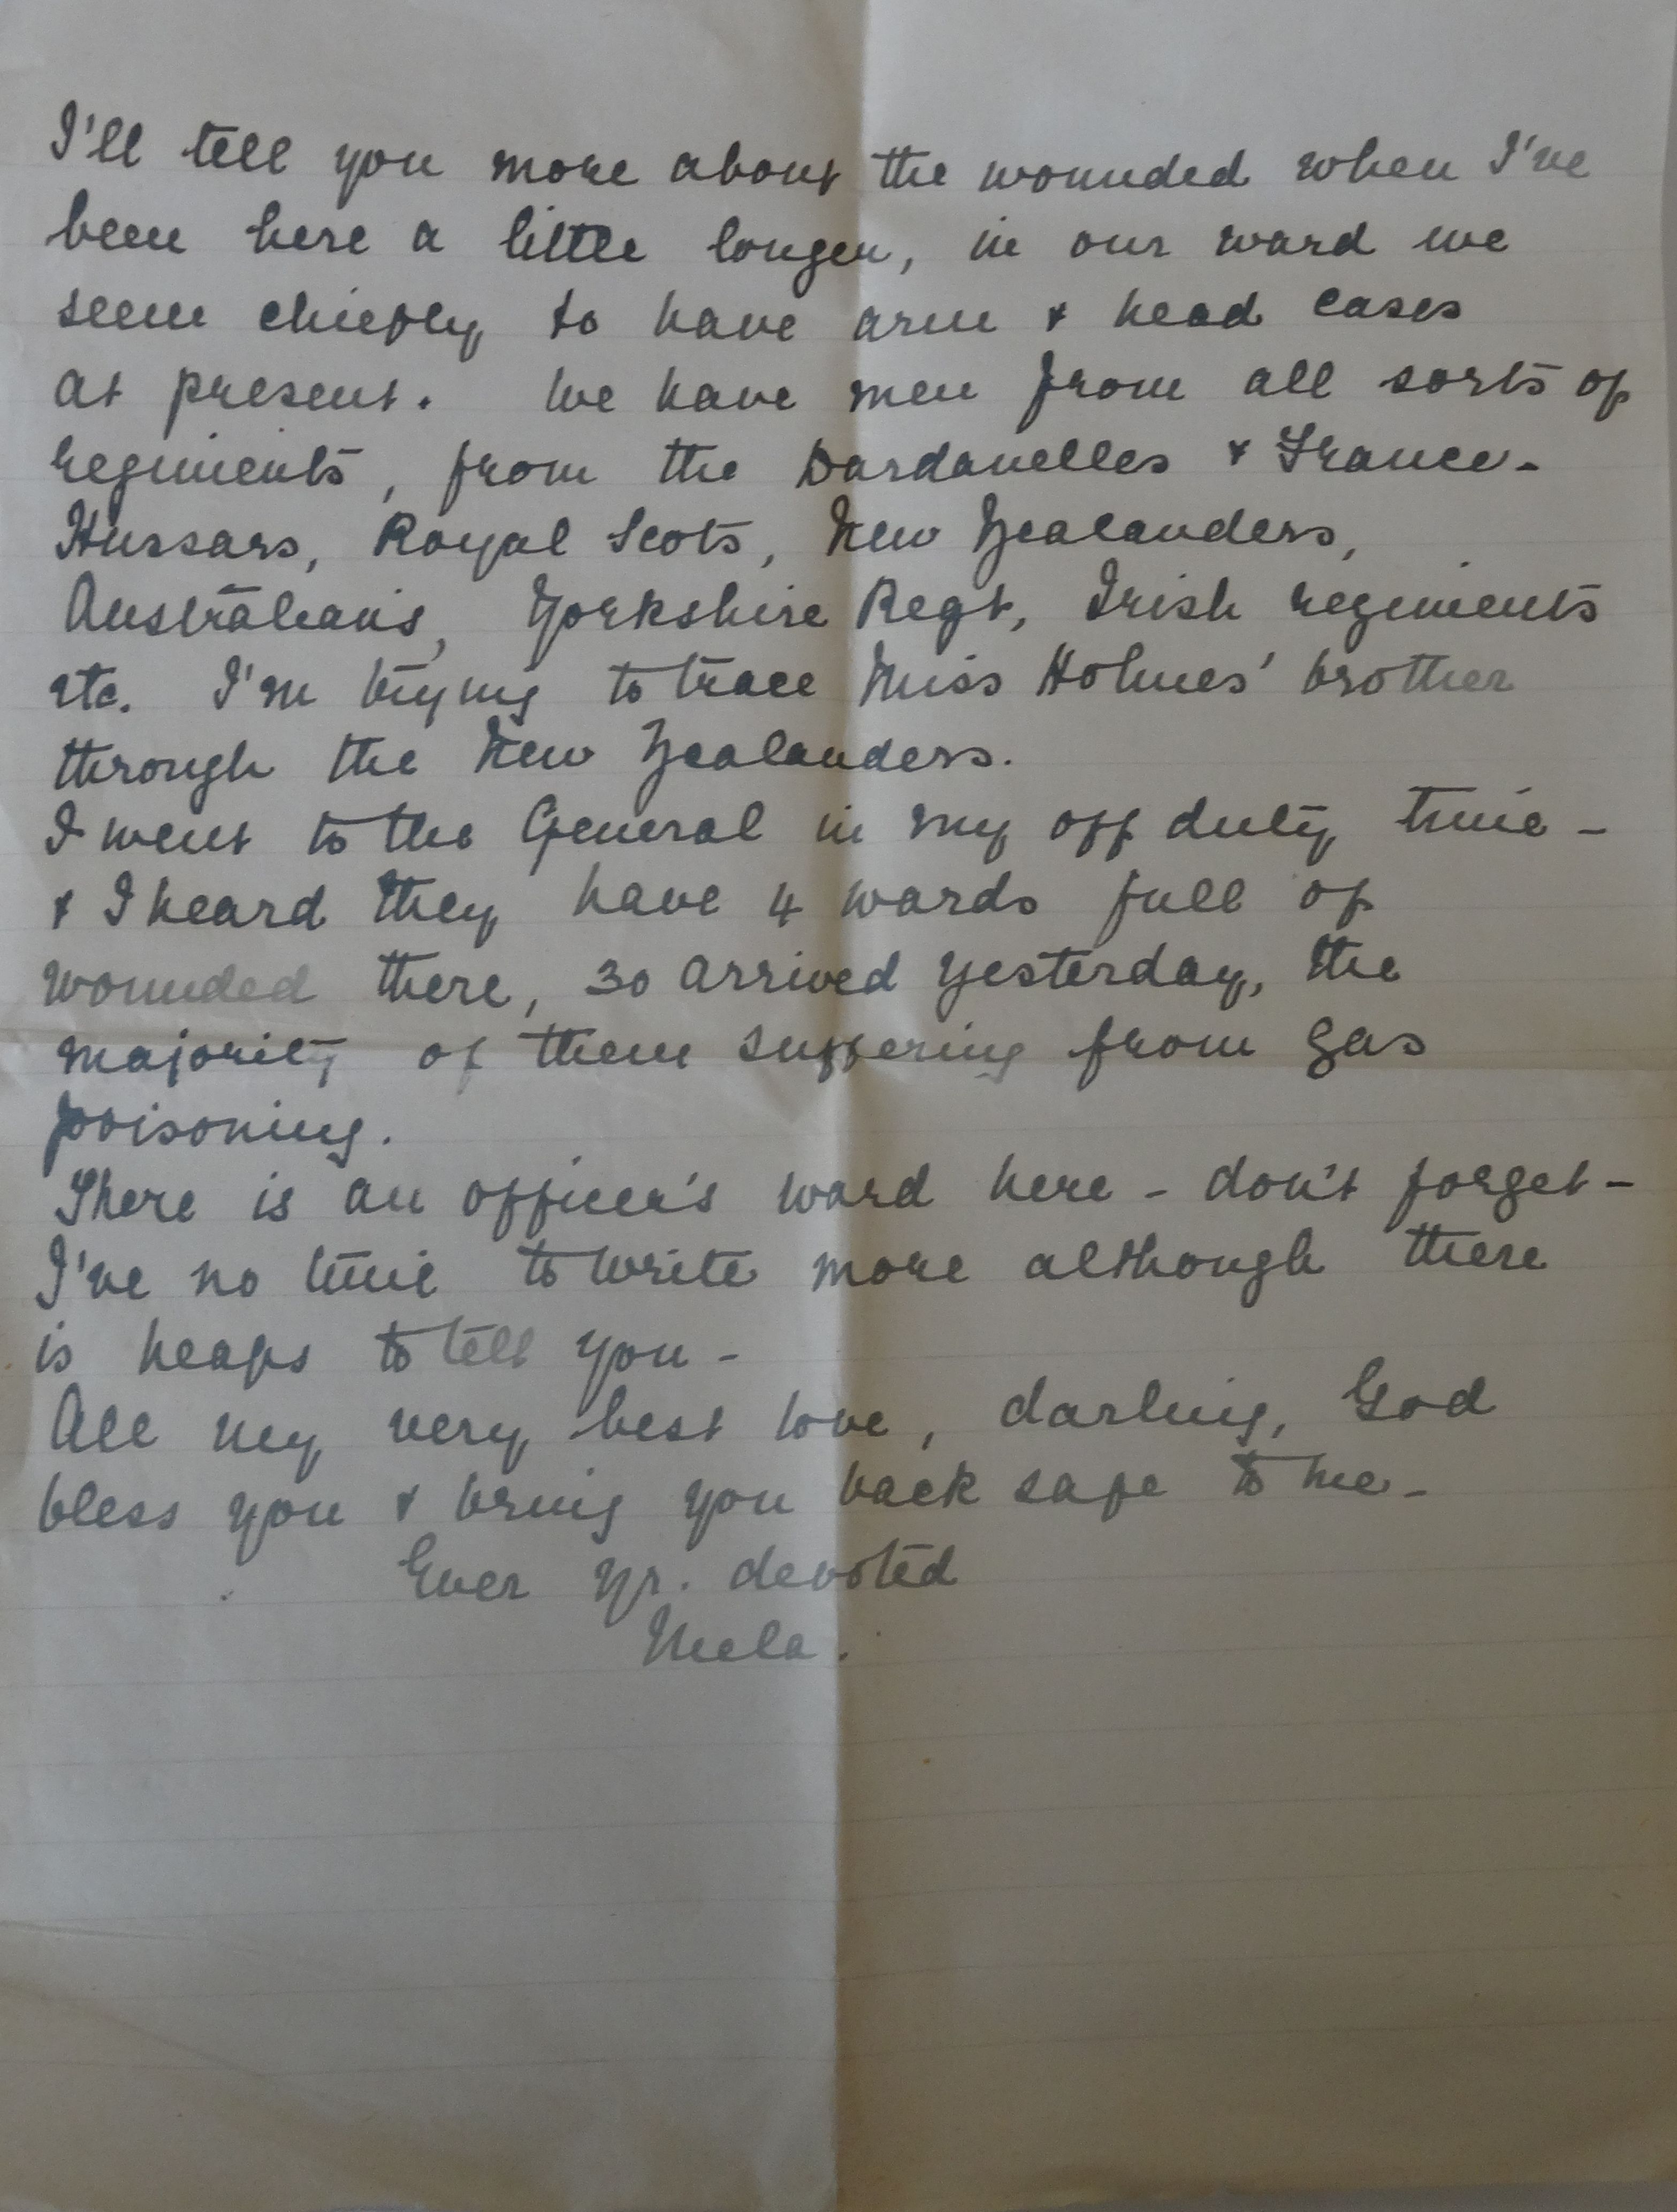 I'll tell you more about the wounded when I've
been here a little longer, in our ward we
seem chiefly to have arm & head cases
at present. We have men from all sorts of
regiments, from the Dardanelles & France -
Hussars, Royal Scots, New Zealanders,
Australians, Yorkshire Regt, Irish regiments
etc. I'm trying to trace Miss Holmes' brother
through the New Zealanders.
I went to the General in my off duty time -
& I heard they have 4 wards full of
wounded there, 30 arrived yesterday, the
majority of them suffering from gas
poisoning.
There is an officer's ward here - don't forget -
I've no time to write more although there
is heaps to tell you -
All my very best love, darling, God
bless you & bring you back safe to me -
Ever yr. devoted
Mela.